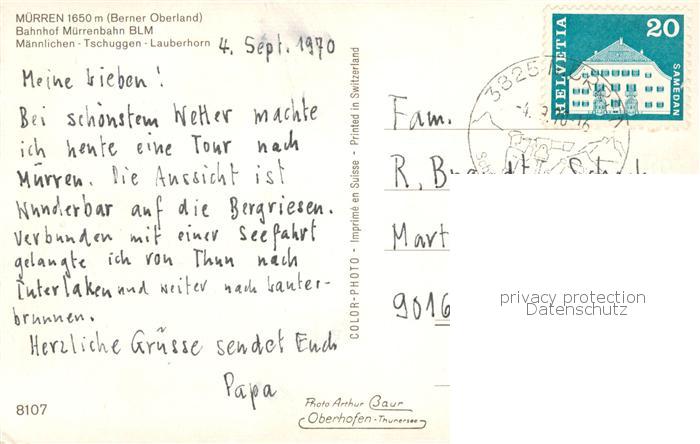 MÜRREN 1650 m (Berner Oberland)
Bahnhof Mürrenbahn BLM
Männlichen - Tschuggen - Lauberhorn
4. Sept. 1970
Meine Lieben!
Bei schönstem Wetter machte
ich heute eine Tour nach
Mürren. Die Aussicht ist
Wunderbar auf die Bergriesen.
Verbunden mit einer Seefahrt
gelangte ich von Thun nach
Interlaken und weiter nach Lauter-
brunnen.
Herzliche Grüsse sendet Euch
Papa
8107
COLOR-PHOTO - Imprimé en Suisse - Printed in Switzerland
Photo Arthur Baur
Oberhofen - Thunersee
HELVETIA
20
SAMEDAN
3825
Fam.
R.
Mart
9016
privacy protection
Datenschutz